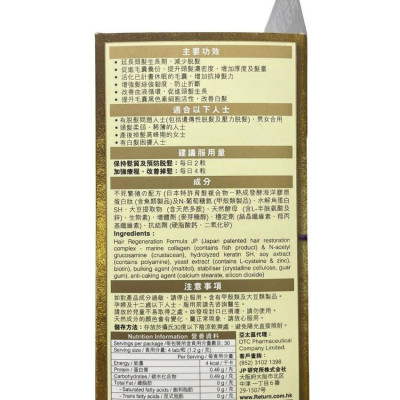 主要功效
• 延長頭髮生長期，減少脫髮
• 促進毛囊養份，提升頭髮濃密度，增加厚度及髮量
• 活化已計劃休眠的毛囊，增加抗掉髮力
• 增強髮絲強韌度，防止折斷
• 改善血液循環，促進頭髮生長
• 提升毛囊黑色素細胞活性，改善白髮
適合以下人士
• 有脫髮問題人士(包括遺傳性脫髮及壓力脫髮)，男女合用
• 頭髮柔弱、稀薄的人士
• 產後掉髮高峰期的女士
• 有白髮困擾人士
建議服用量
保持髮質及預防脫髮：每日2粒
加強療程，改善掉髮：每日4粒
成分
不死繁捲の配方 (日本特許育髮複合物－熟成發酵海洋膠原
蛋白肽 (含魚類製品)及N-葡萄糖氨(甲殼類製品)、水解角蛋白
SH、大豆提取物 (含天然多胺)、天然酵母 (含L-半胱氨酸及
鋅)、生物素)、增體劑 (麥芽糖醇)、穩定劑 (結晶纖維素、羥丙
基纖維素)、抗結劑 (硬脂酸鈣、二氧化矽)
Ingredients :
Hair Regeneration Formula JP (Japan patented hair restoration
complex - marine collagen (contains fish products) & N-acetyl
glucosamine (crustacean), hydrolyzed keratin SH, soy extract
(contains polyamine), yeast extract (contains L-cysteine & zinc),
biotin), bulking agent (maltitol), stabiliser (crystalline cellulose, guar
gum), anti-caking agent (calcium stearate, silicon dioxide)
注意事項
卸對產品成分過敏，請停止服用。含有甲殼類及大豆類製品。
孕婦及十二歲以下人士，服用前請先咨詢醫生。
請放於兒童不易取得之處。如發現封口已損壞，請勿使用。
天然成分的顏色會有變化，屬正常現象，請放心服用。
儲存方法：存放於攝氏30度以下陰涼乾爽處，避免陽光直接照射。
Nutrition Information 營養資料
Servings per package/每包裝所含食用分量數目: 30
Serving size/食用分量: 4 tab/粒 (1.2 g/克)
Per Serving / 每食用分量
Energy/能量 4 kcal/千卡
Protein/蛋白質 0.46 g/克
Carbohydrates/碳水化合物 0.49 g/克
Total Fat/總脂肪 0 g/克
- Saturated fatty acids/飽和脂肪 0 g/克
- Trans fatty acids/反式脂肪 0 g/克
亞太區代理：
DTC Pharmaceutical
Company Limited.
客戶查詢：
(852) 3102 1398
JP 研究所株式会社
大阪府大阪市北区
中津一丁目6番
29-1507号
www.Return.com.hk